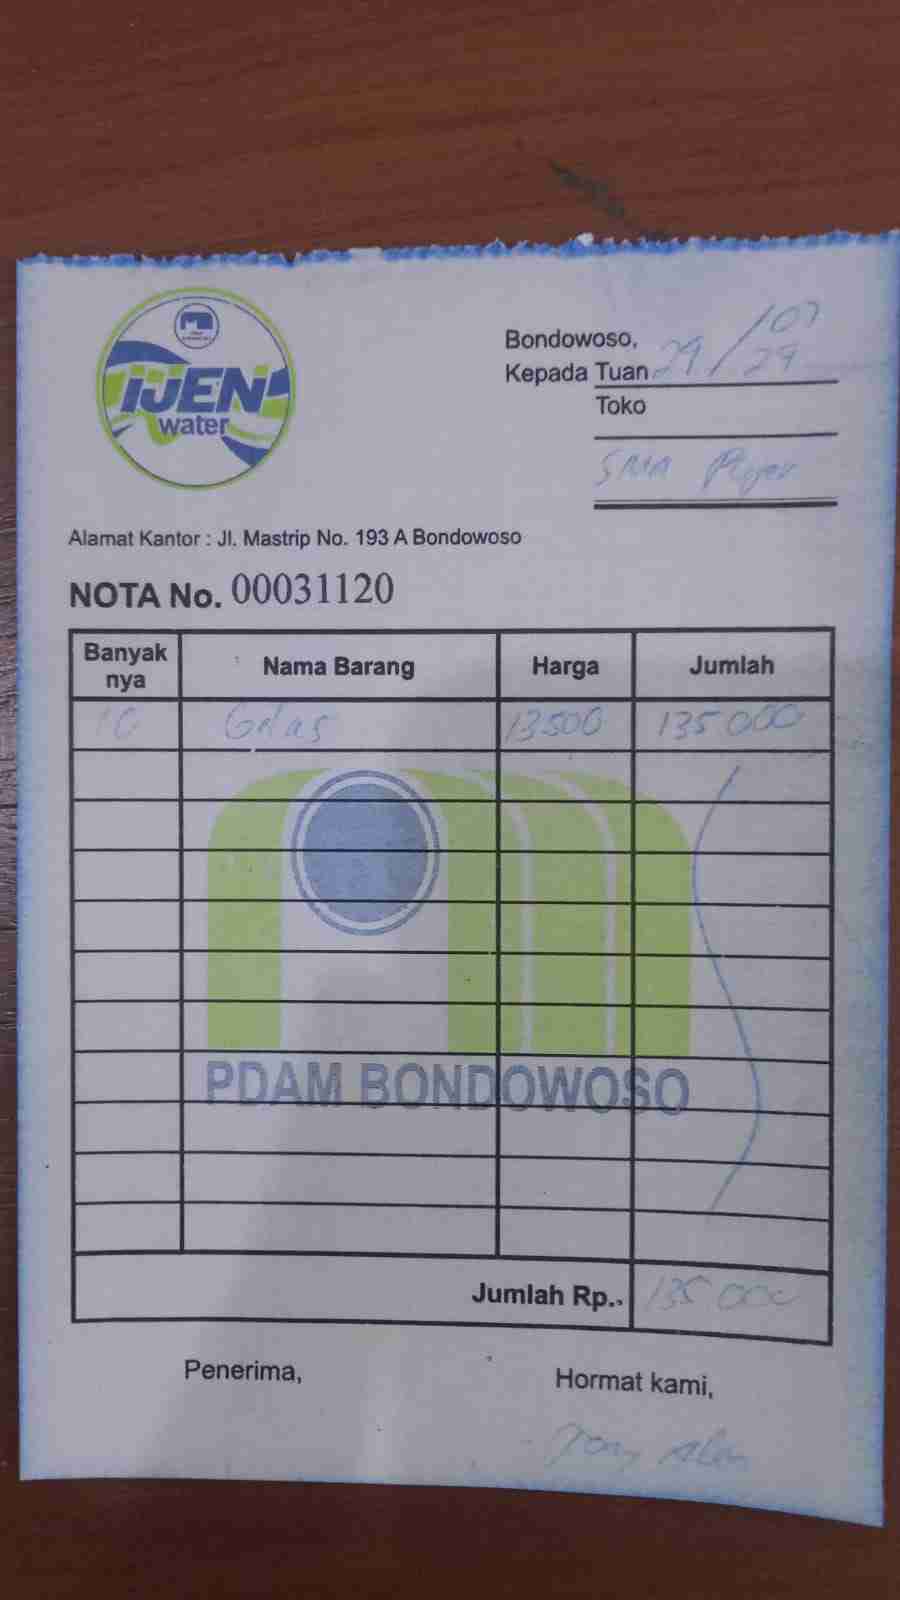 IJEN
water
Bondowoso, 29/07
Kepada Tuan 29
Toko
SMA
Alamat Kantor : Jl. Mastrip No. 193 A Bondowoso
NOTA No. 00031120
Banyak nya Nama Barang Harga Jumlah
10 Gelas 13500 135000
PDAM BONDOWOSO
Jumlah Rp.. 135 000
Penerima, Hormat kami,